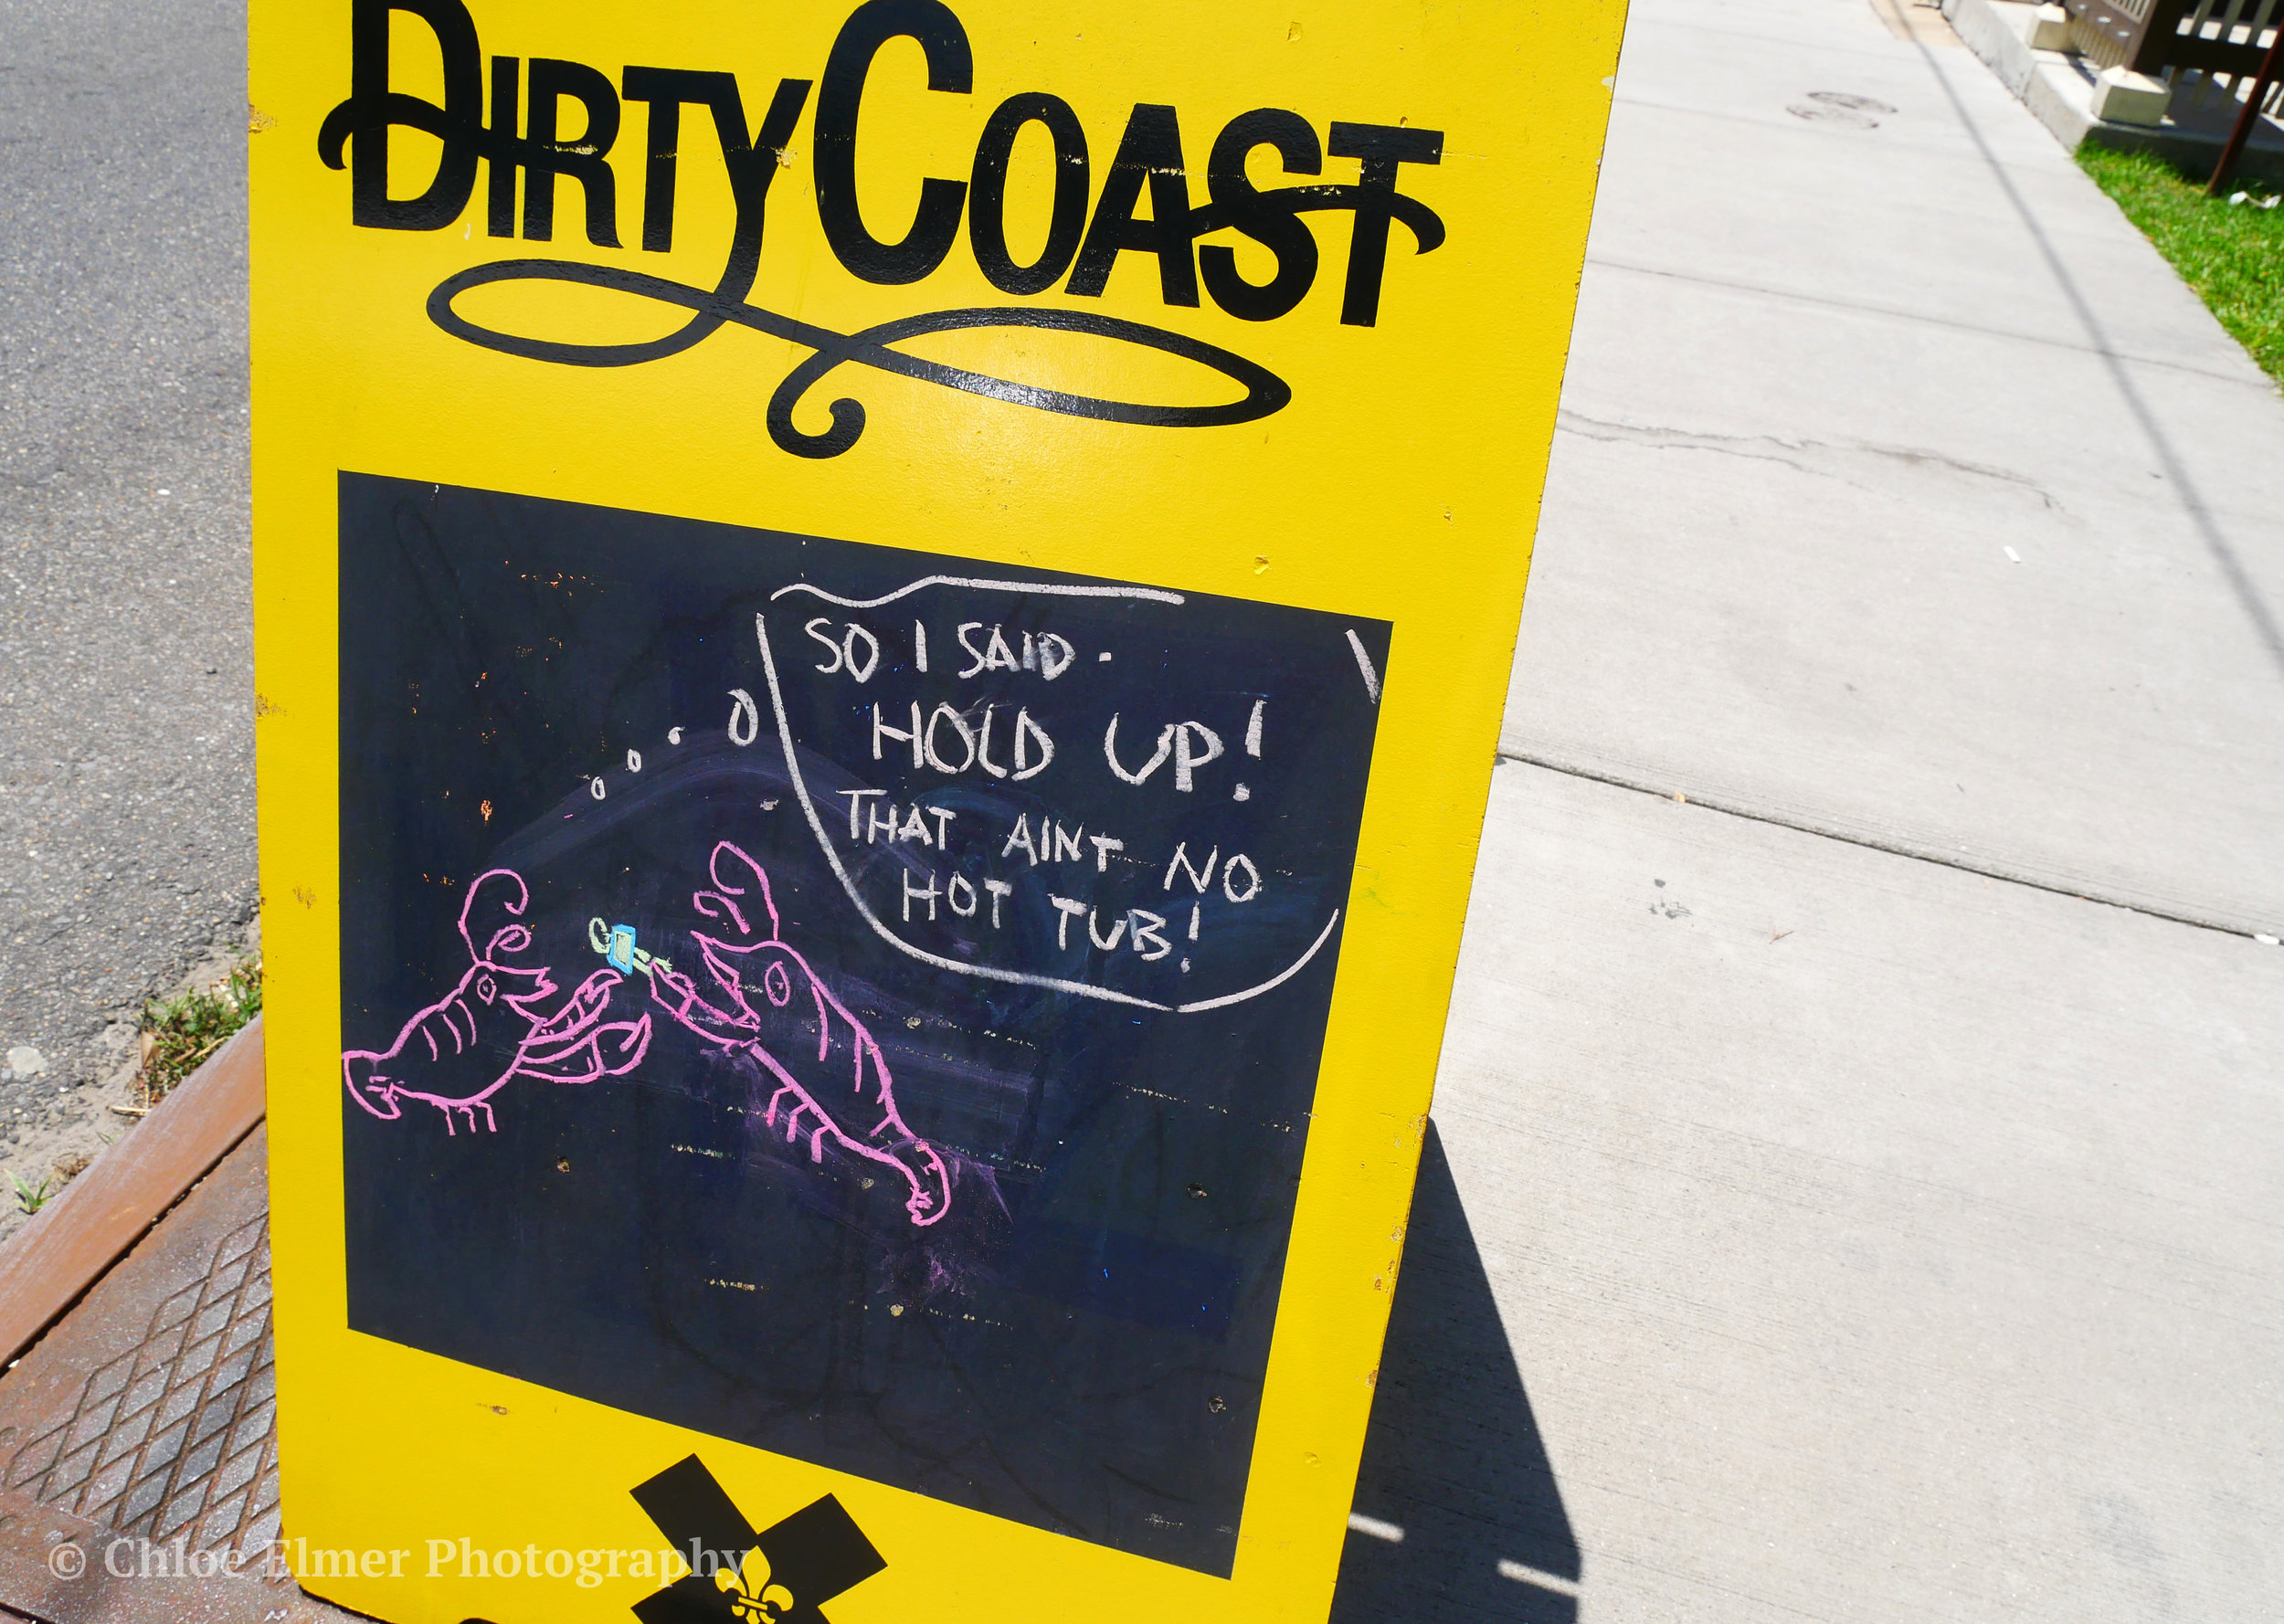 DIRTY COAST
SO I SAID.
HOLD UP!
THAT AINT NO
HOT TUB!
© Chloe Elmer Photography